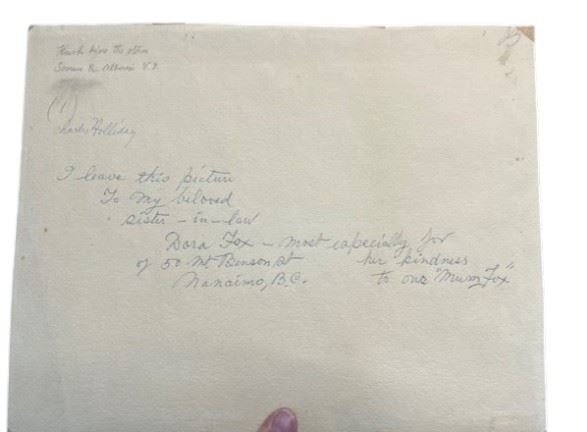 the storm
Somas R. Alberni V.I.
(1)
Charles Holliday
I leave this picture
To my beloved
sister-in-law
Dora Fox – most especially for
of 50 Mt Benson St her kindness
Nanaimo, B.C. to our "Mum Fox"